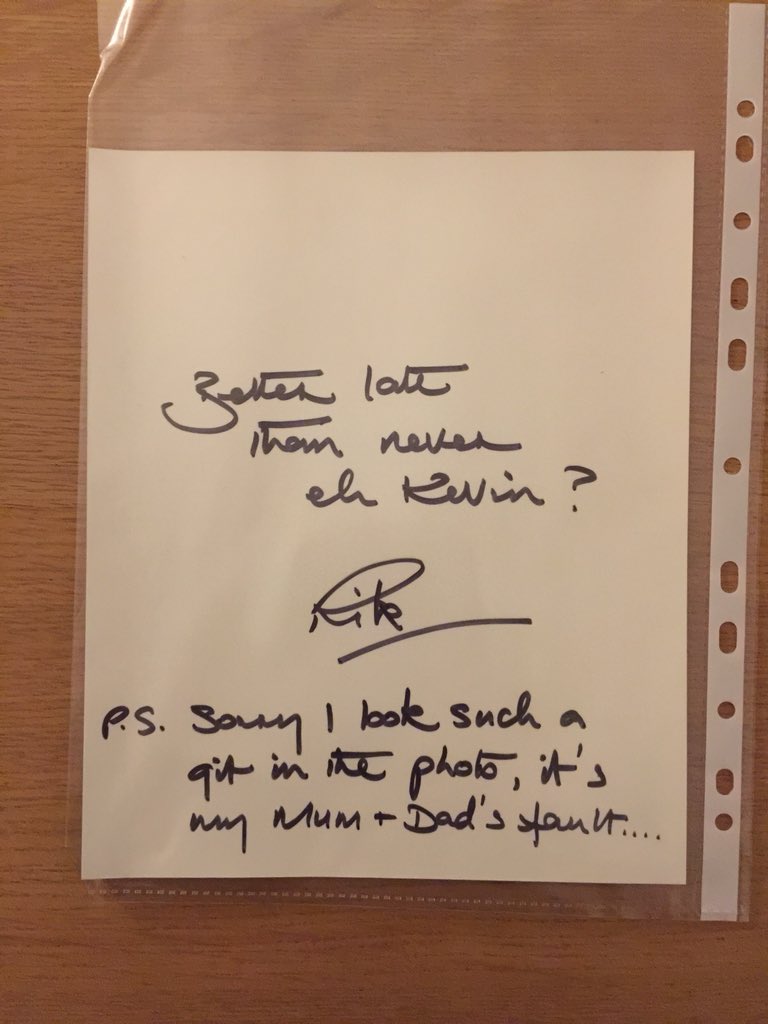 Better late
than never
eh Kevin?
Rik
P.S. Sorry I look such a
git in the photo, it's
my Mum + Dad's fault....